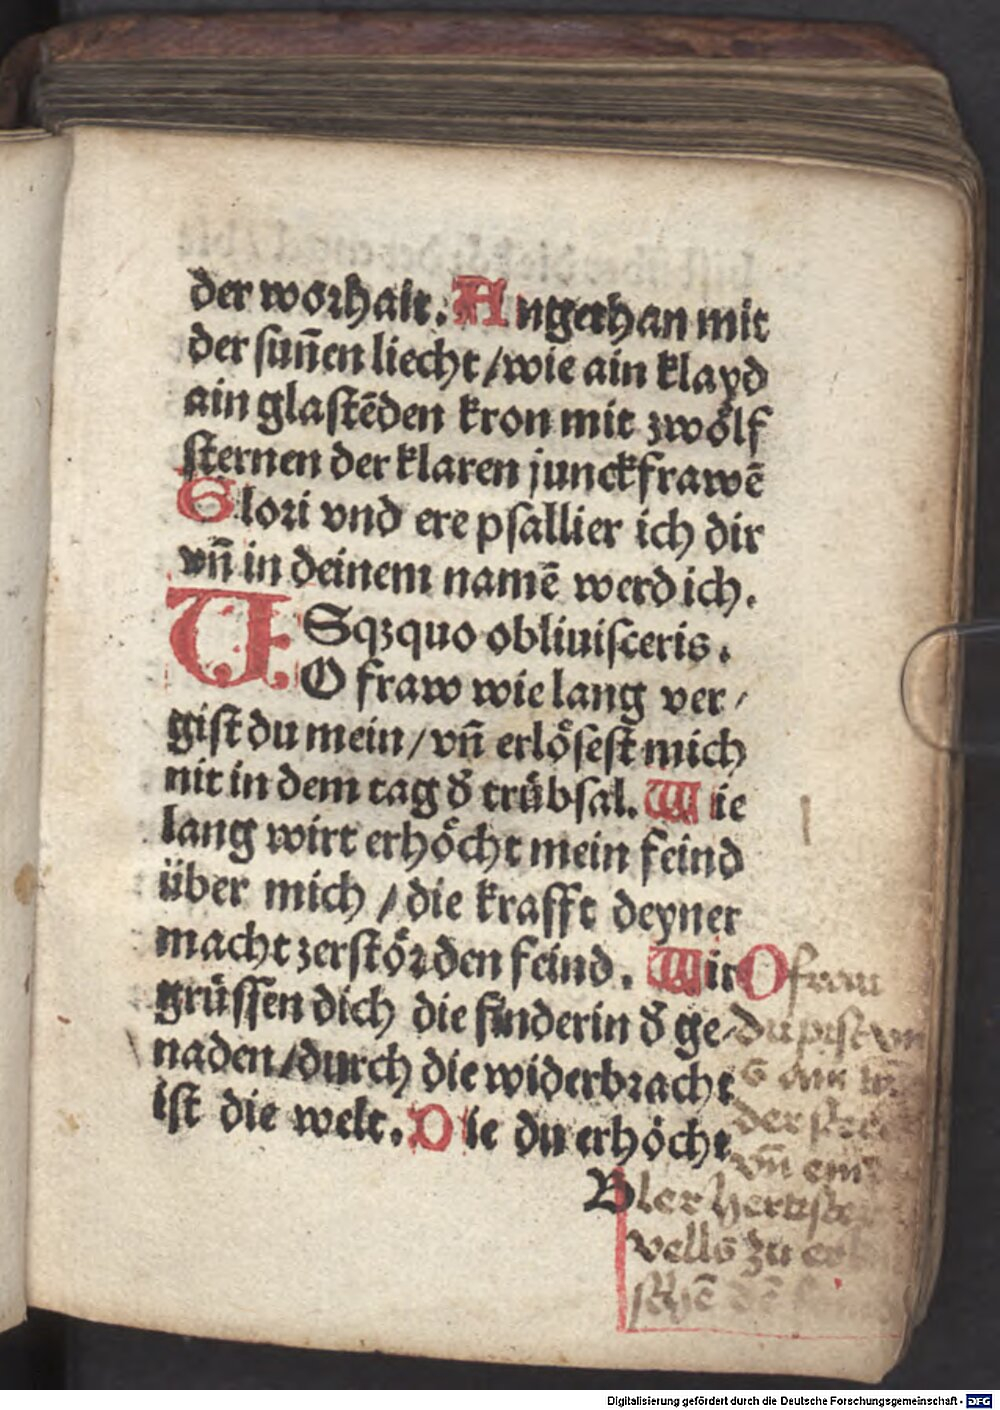 der worhait. Angethan mit
der suñen liecht / wie ain klayd
ain glastẽden kron mit zwölf
sternen der klaren junckfrawẽ
Glori vnd ere psallier ich dir
vñ in deinem namẽ werd ich.
USqꝫquo obliuisceris.
O fraw wie lang ver /
gist du mein / vñ erlösest mich
nit in dem tag đ trübsal. Wie
lang wirt erhöcht mein feind
über mich / die krafft deyner
macht zerstör den feind. Wir
grüssen dich die finderin đ ge /
naden / durch die widerbracht
ist die welt. Die du erhöcht
B
O frau
du pist
vñ
zu
Digitalisierung gefördert durch die Deutsche Forschungsgemeinschaft - DFG